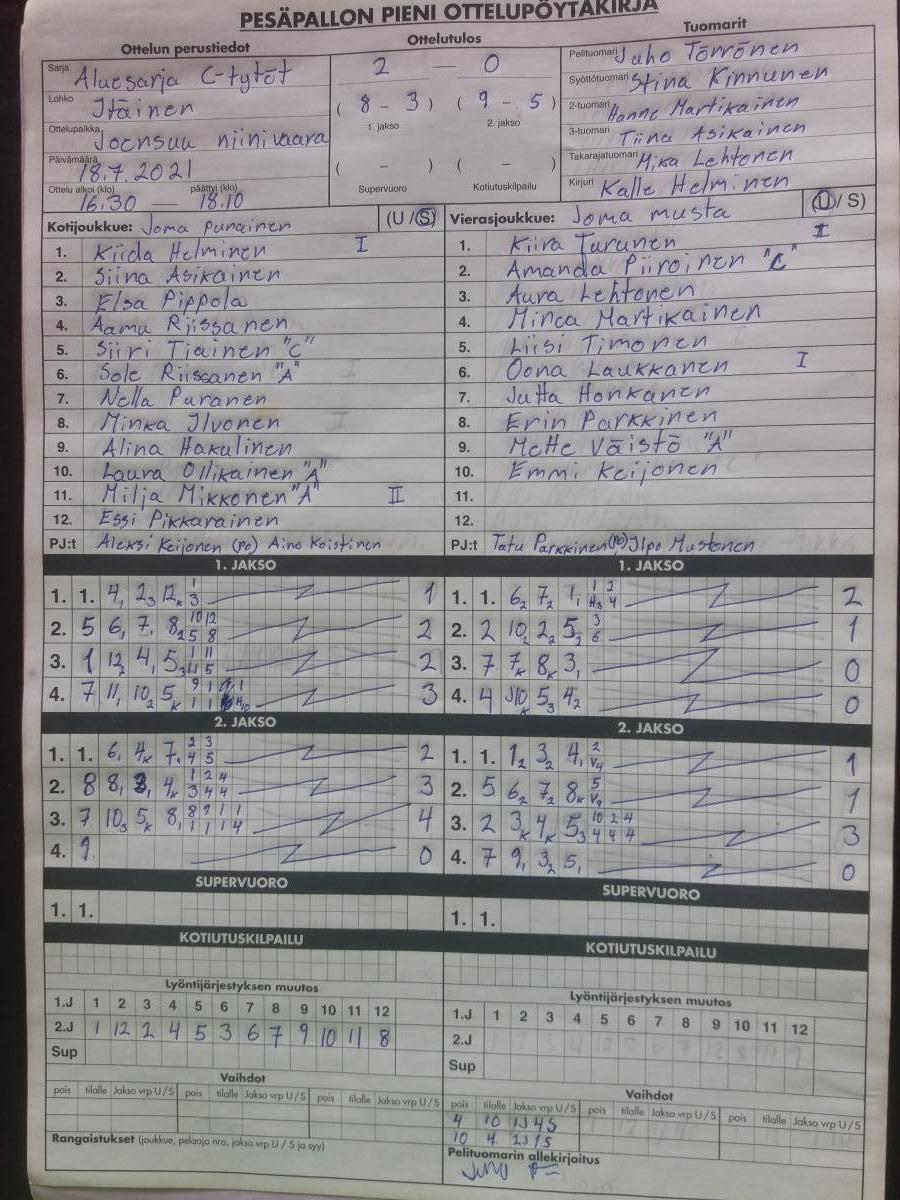 PESÄPALLON PIENI OTTELUPÖYTÄKIRJA
Ottelun perustiedot
Ottelutulos
Tuomarit
Sarja Aluesarja C-tytöt
2 — 0
Pelituomari Juho Törrönen
Lohko Itäinen
( 8 - 3 ) ( 9 - 5 )
1. jakso 2. jakso
Syöttötuomari Stina Kinnunen
Ottelupaikka Joensuu niinivaara
2-tuomari Hanne Martikainen
3-tuomari Tiina Asikainen
Päivämäärä 18.7.2021
( - ) ( - )
Takarajatuomari Mika Lehtonen
Ottelu alkoi (klo) päättyi (klo)
16.30 — 18.10
Supervuoro Kotiutuskilpailu
Kirjuri Kalle Helminen
Kotijoukkue: Joma punainen (U / S)
1. Kiida Helminen I
2. Siina Asikainen
3. Elsa Pippola
4. Aamu Riissanen
5. Siiri Tiainen "C"
6. Sole Riissanen "A"
7. Nella Puranen
8. Minka Ilvonen
9. Alina Hakulinen
10. Laura Ollikainen "A"
11. Milja Mikkonen "A" II
12. Essi Pikkarainen
PJ:t Aleksi Keijonen (PO) Aino Koistinen
Vierasjoukkue: Joma musta (U / S)
1. Kiira Turunen I
2. Amanda Piiroinen "C"
3. Aura Lehtonen
4. Minea Martikainen
5. Liisi Timonen
6. Oona Laukkanen I
7. Jutta Honkanen
8. Erin Parkkinen
9. Mette Väistö "A"
10. Emmi Keijonen
11.
12.
PJ:t Tatu Parkkinen (PO) Ilpo Mustonen
1. JAKSO
1. 1. 4, 2₃ 12ₖ 1 3 1
2. 5 6, 7, 8₂ 10 12 5 8 2
3. 1 12₂ 4, 5₃ 1 11 4 5 2
4. 7 11, 10₂ 5ₖ 9 1 1 1 3
1. JAKSO
1. 1. 6₂ 7₂ 1, 1 2 H3 4 2
2. 2 10₂ 2₂ 5₂ 3 6 1
3. 7 7ₖ 8ₖ 3, 0
4. 4 10ₖ 5₃ 4₂ 0
2. JAKSO
1. 1. 6, 4ₖ 7, 2 3 4 5 2
2. 8 8, 3, 4ₖ 1 2 4 3 4 4 3
3. 7 10₃ 5ₖ 8, 8 9 1 1 1 1 1 4 4
4. 9 0
2. JAKSO
1. 1. 1₂ 3₂ 4, 2 V4 1
2. 5 6₂ 7₂ 8ₖ 5 V9 1
3. 2 3ₖ 4ₖ 5₃ 10 2 4 4 4 4 3
4. 7 9, 3₂ 5, 0
SUPERVUORO
1. 1.
SUPERVUORO
1. 1.
KOTIUTUSKILPAILU
KOTIUTUSKILPAILU
Lyöntijärjestyksen muutos
1.J 1 2 3 4 5 6 7 8 9 10 11 12
2.J 1 12 2 4 5 3 6 7 9 10 11 8
Sup
Lyöntijärjestyksen muutos
1.J 1 2 3 4 5 6 7 8 9 10 11 12
2.J
Sup
Vaihdot
pois tilalle Jakso vrp U / S pois tilalle Jakso vrp U / S pois tilalle Jakso vrp U / S
Vaihdot
pois tilalle Jakso vrp U / S pois tilalle Jakso vrp U / S pois tilalle Jakso vrp U / S
4 10 1J4S
10 4 2J1S
Rangaistukset (joukkue, pelaaja nro, jakso vrp U / S ja syy)
Pelituomarin allekirjoitus